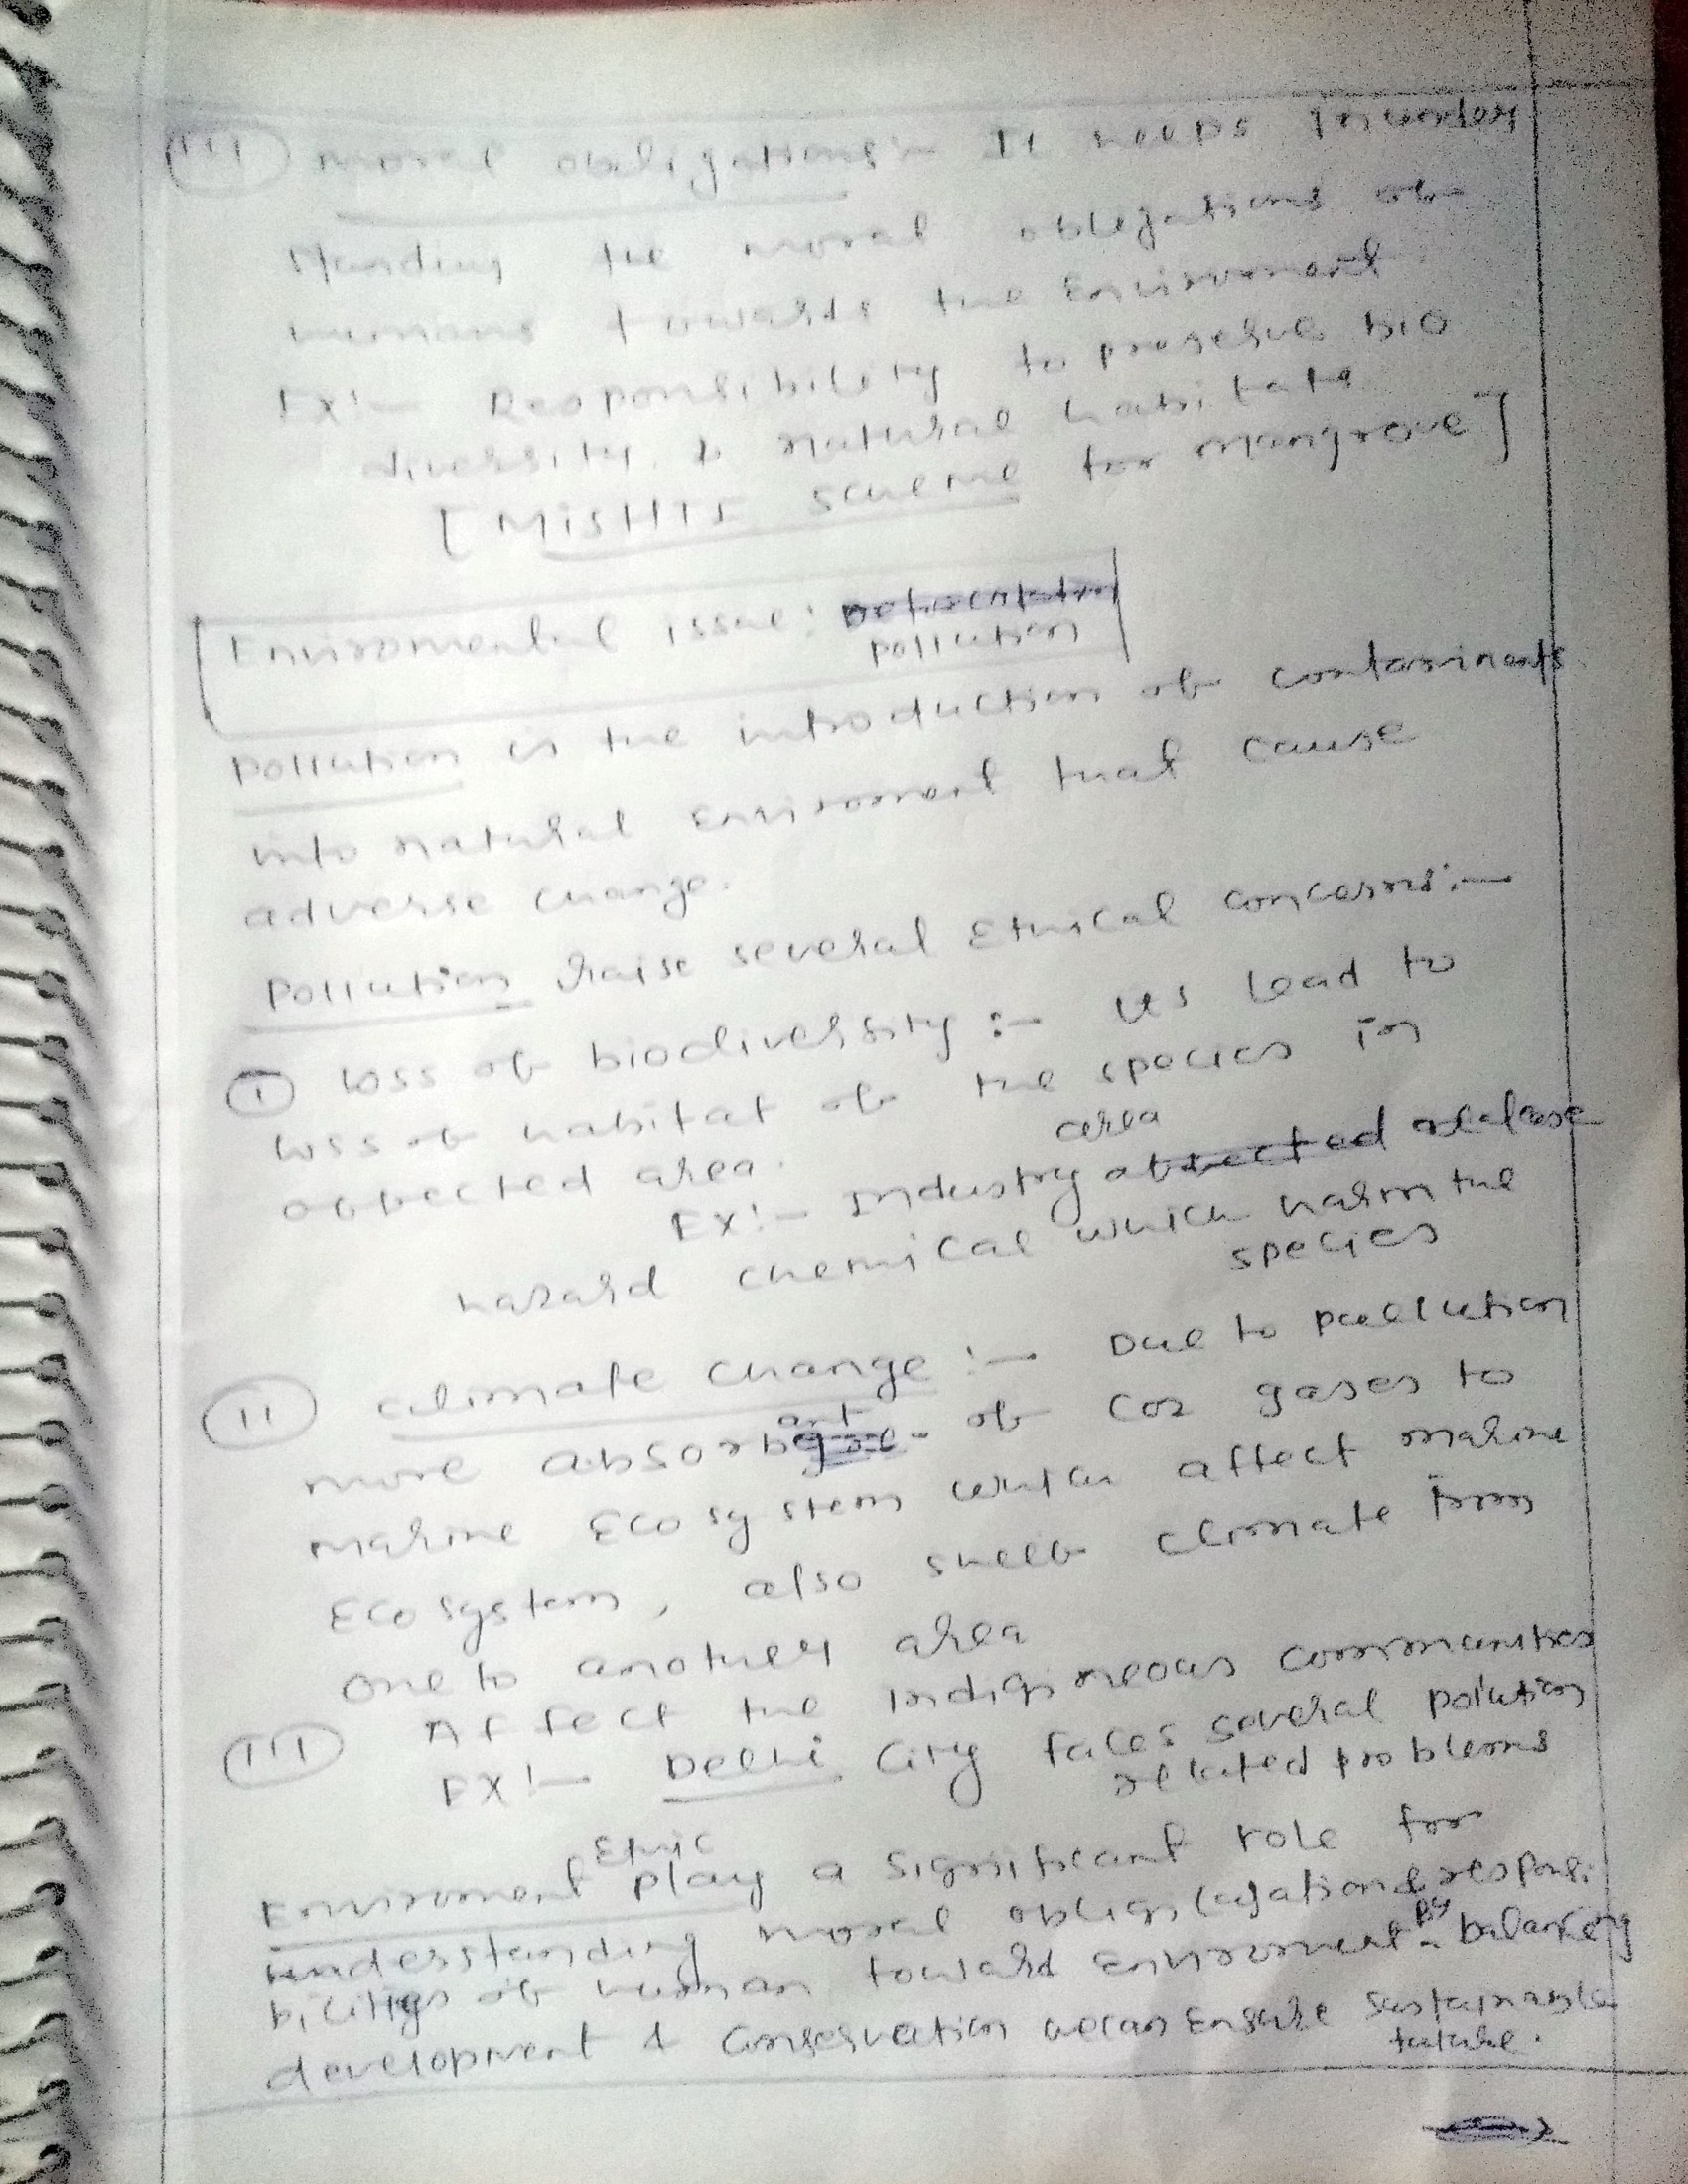 (III) moral obligations :- It helps In under
standing the moral obligations of
humans towards the Enviroment
Ex:- Responsibility to preserve bio
diversity & natural habitats
[MISHTI scheme for mangrove]
Enviromental issue: Deforestation
Pollution
Pollution is the introduction of contaminants
into natural Enviroment that cause
adverse change.
Pollution raise several Ethical concerns:-
(I) Loss of biodiversity :- It's lead to
loss of habitat of the species in
affected area.
area
Ex:- Industry affected release
hazard chemical which harm the
species
(II) Climate Change :- Due to pollution
ant
more absorb of CO2 gases to
marine Ecosystem which affect marine
Ecosystem, also shift climate from
one to another area
(III) Affect the Indigineous communities
Ex:- Delhi City faces several polution
related problems
Ethic
Enviroment play a significant role for
understanding moral obligation & responsi
bilitys of human toward Enviroment. By balancing
development & Conservation we can Ensure sustainable
future.